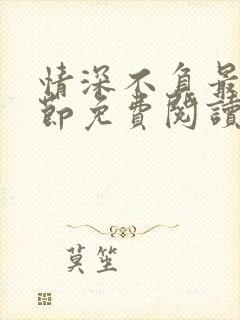 情深不負最
節免費閱讀
莫笙